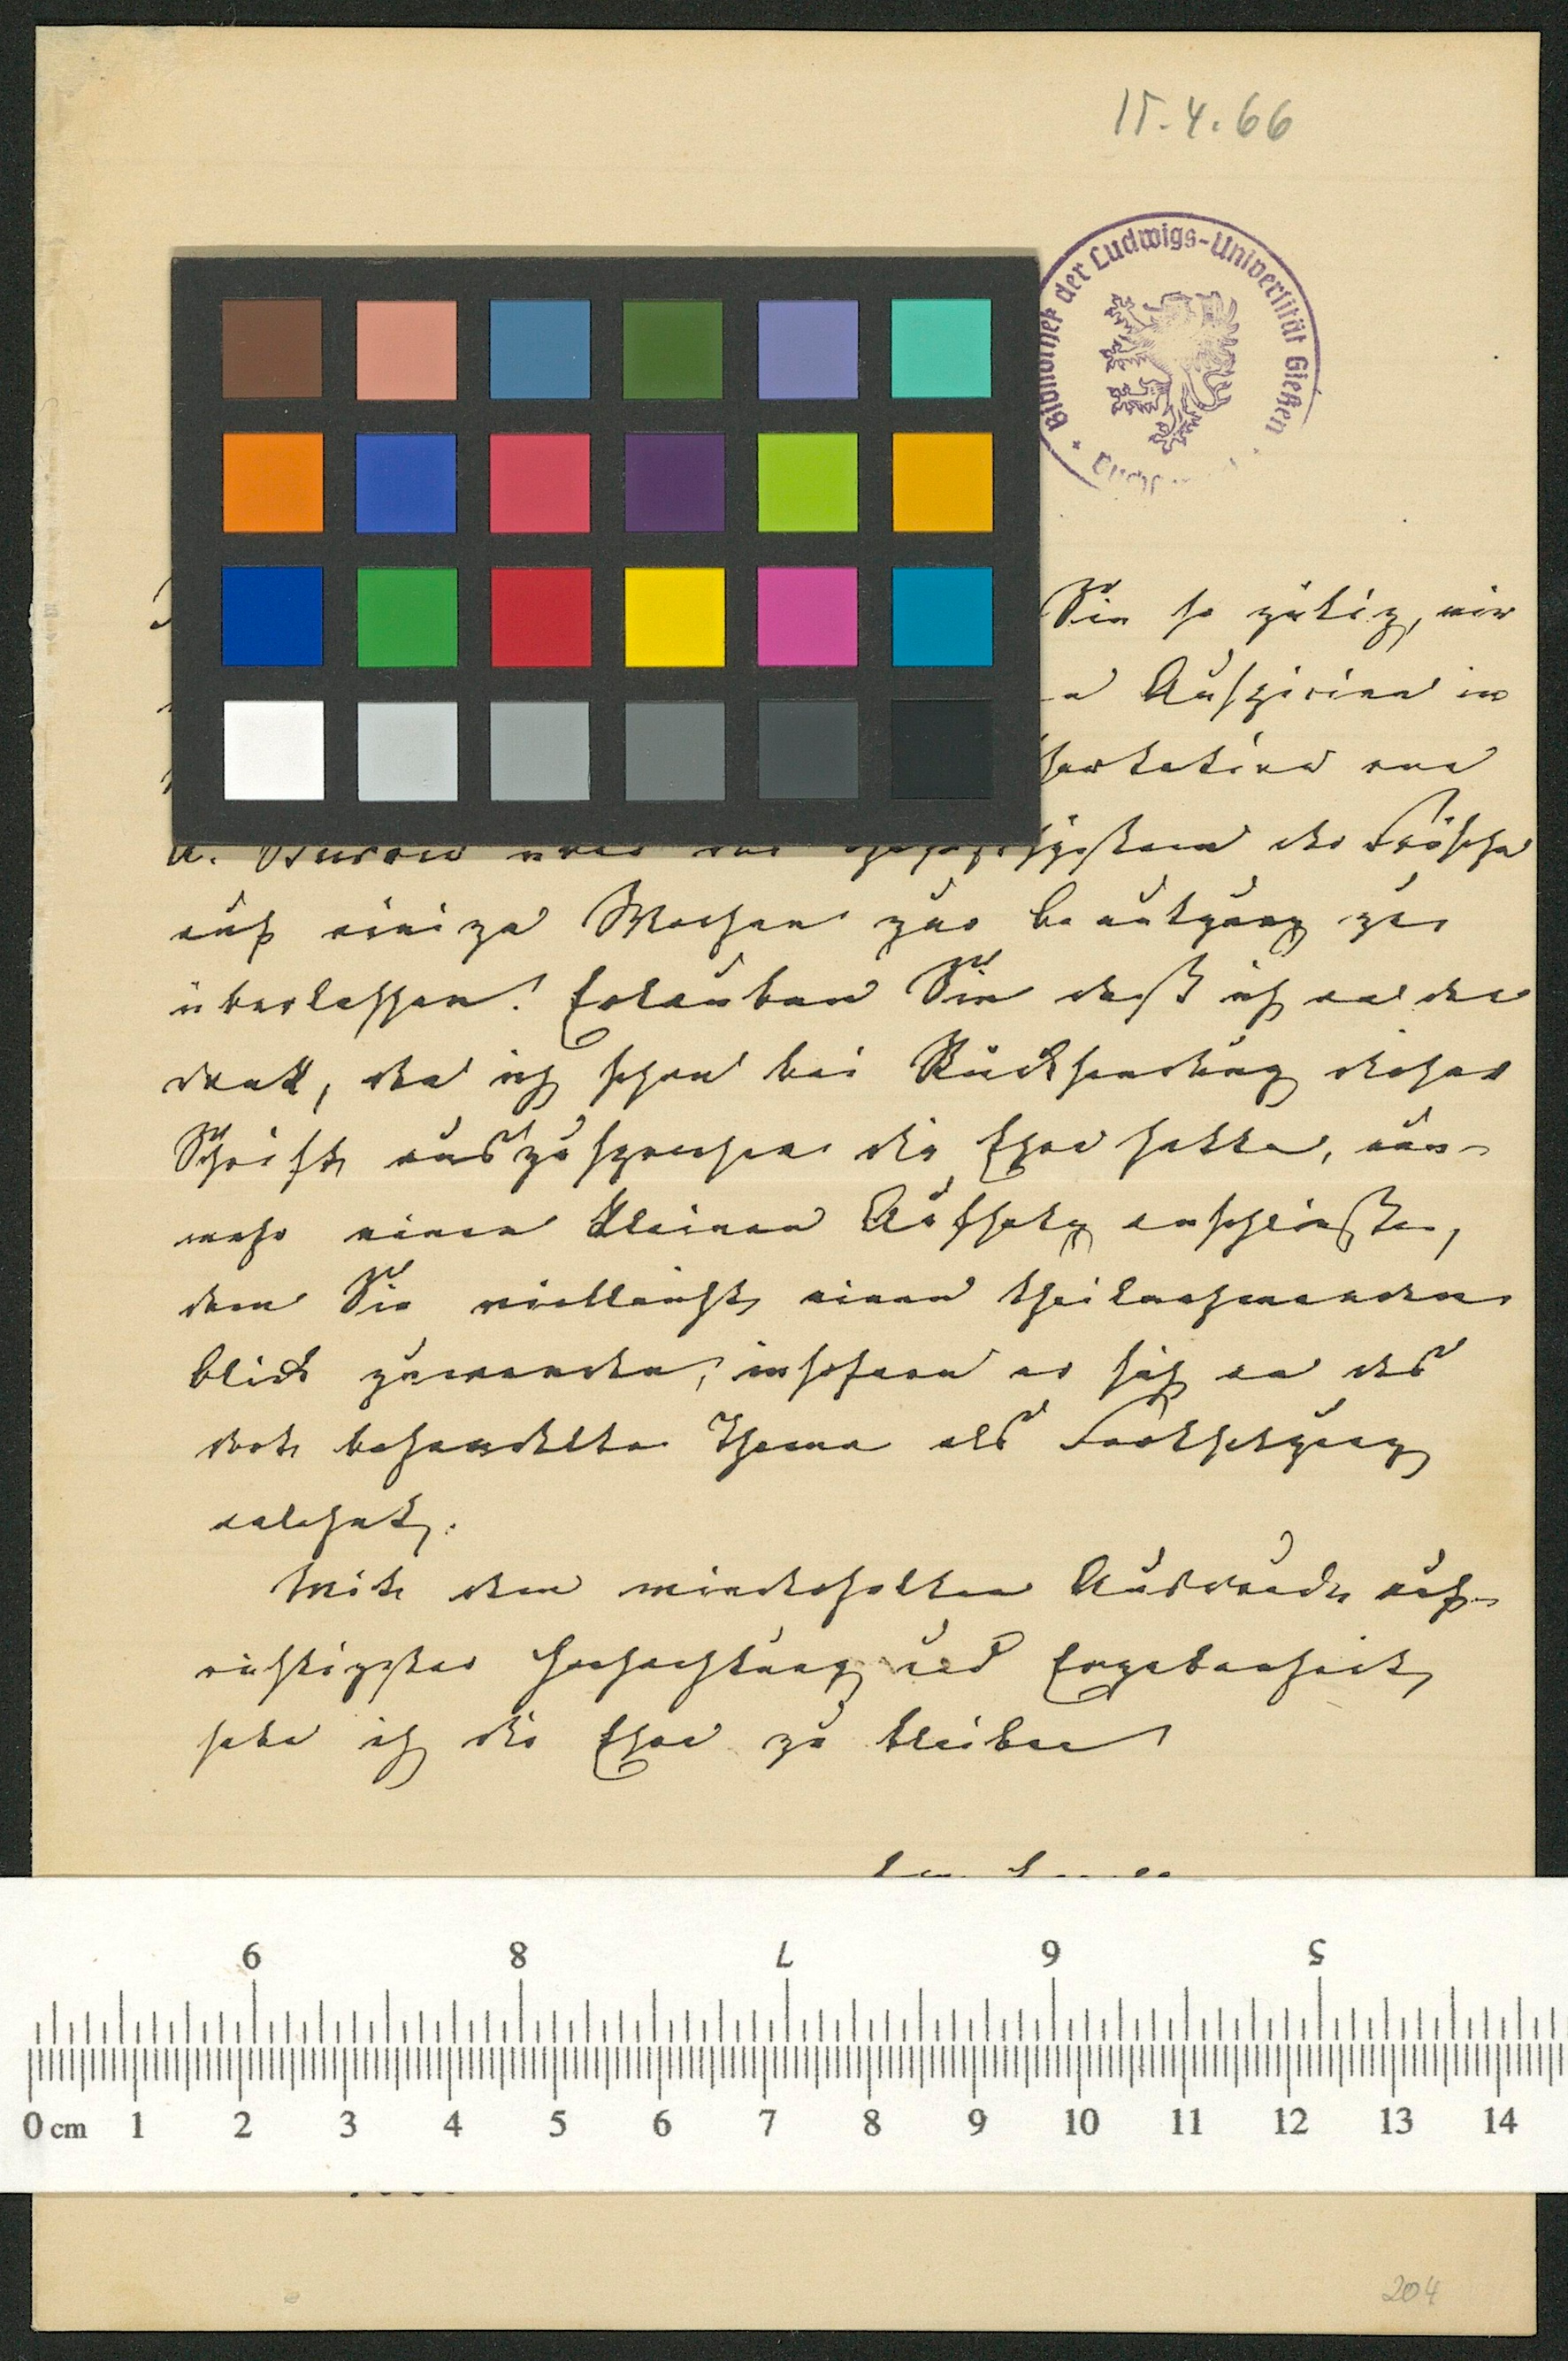 15.4.66
Bibliothek der Ludwigs-Universität Gießen
Sie so gütig, mir
Auspicien in
sertation von
A. Burow über das Gefäßsystem der Frösche
auf einige Wochen zur Benützung zu
überlassen. Erlauben Sie daß ich an den
Dank, den ich schon bei Rücksendung dieser
Schrift auszusprechen die Ehre hatte, nun-
mehr einen kleinen Aufsatz anschließe,
dem Sie vielleicht einen theilnehmenden
Blick zuwenden, insofern er sich an das
dort behandelte Thema als Fortsetzung
anlehnt.
Mit dem wiederholten Ausdrucke auf-
richtigster Hochachtung und Ergebenheit
habe ich die Ehre zu bleiben
9 8 7 6 5
0 cm 1 2 3 4 5 6 7 8 9 10 11 12 13 14
204